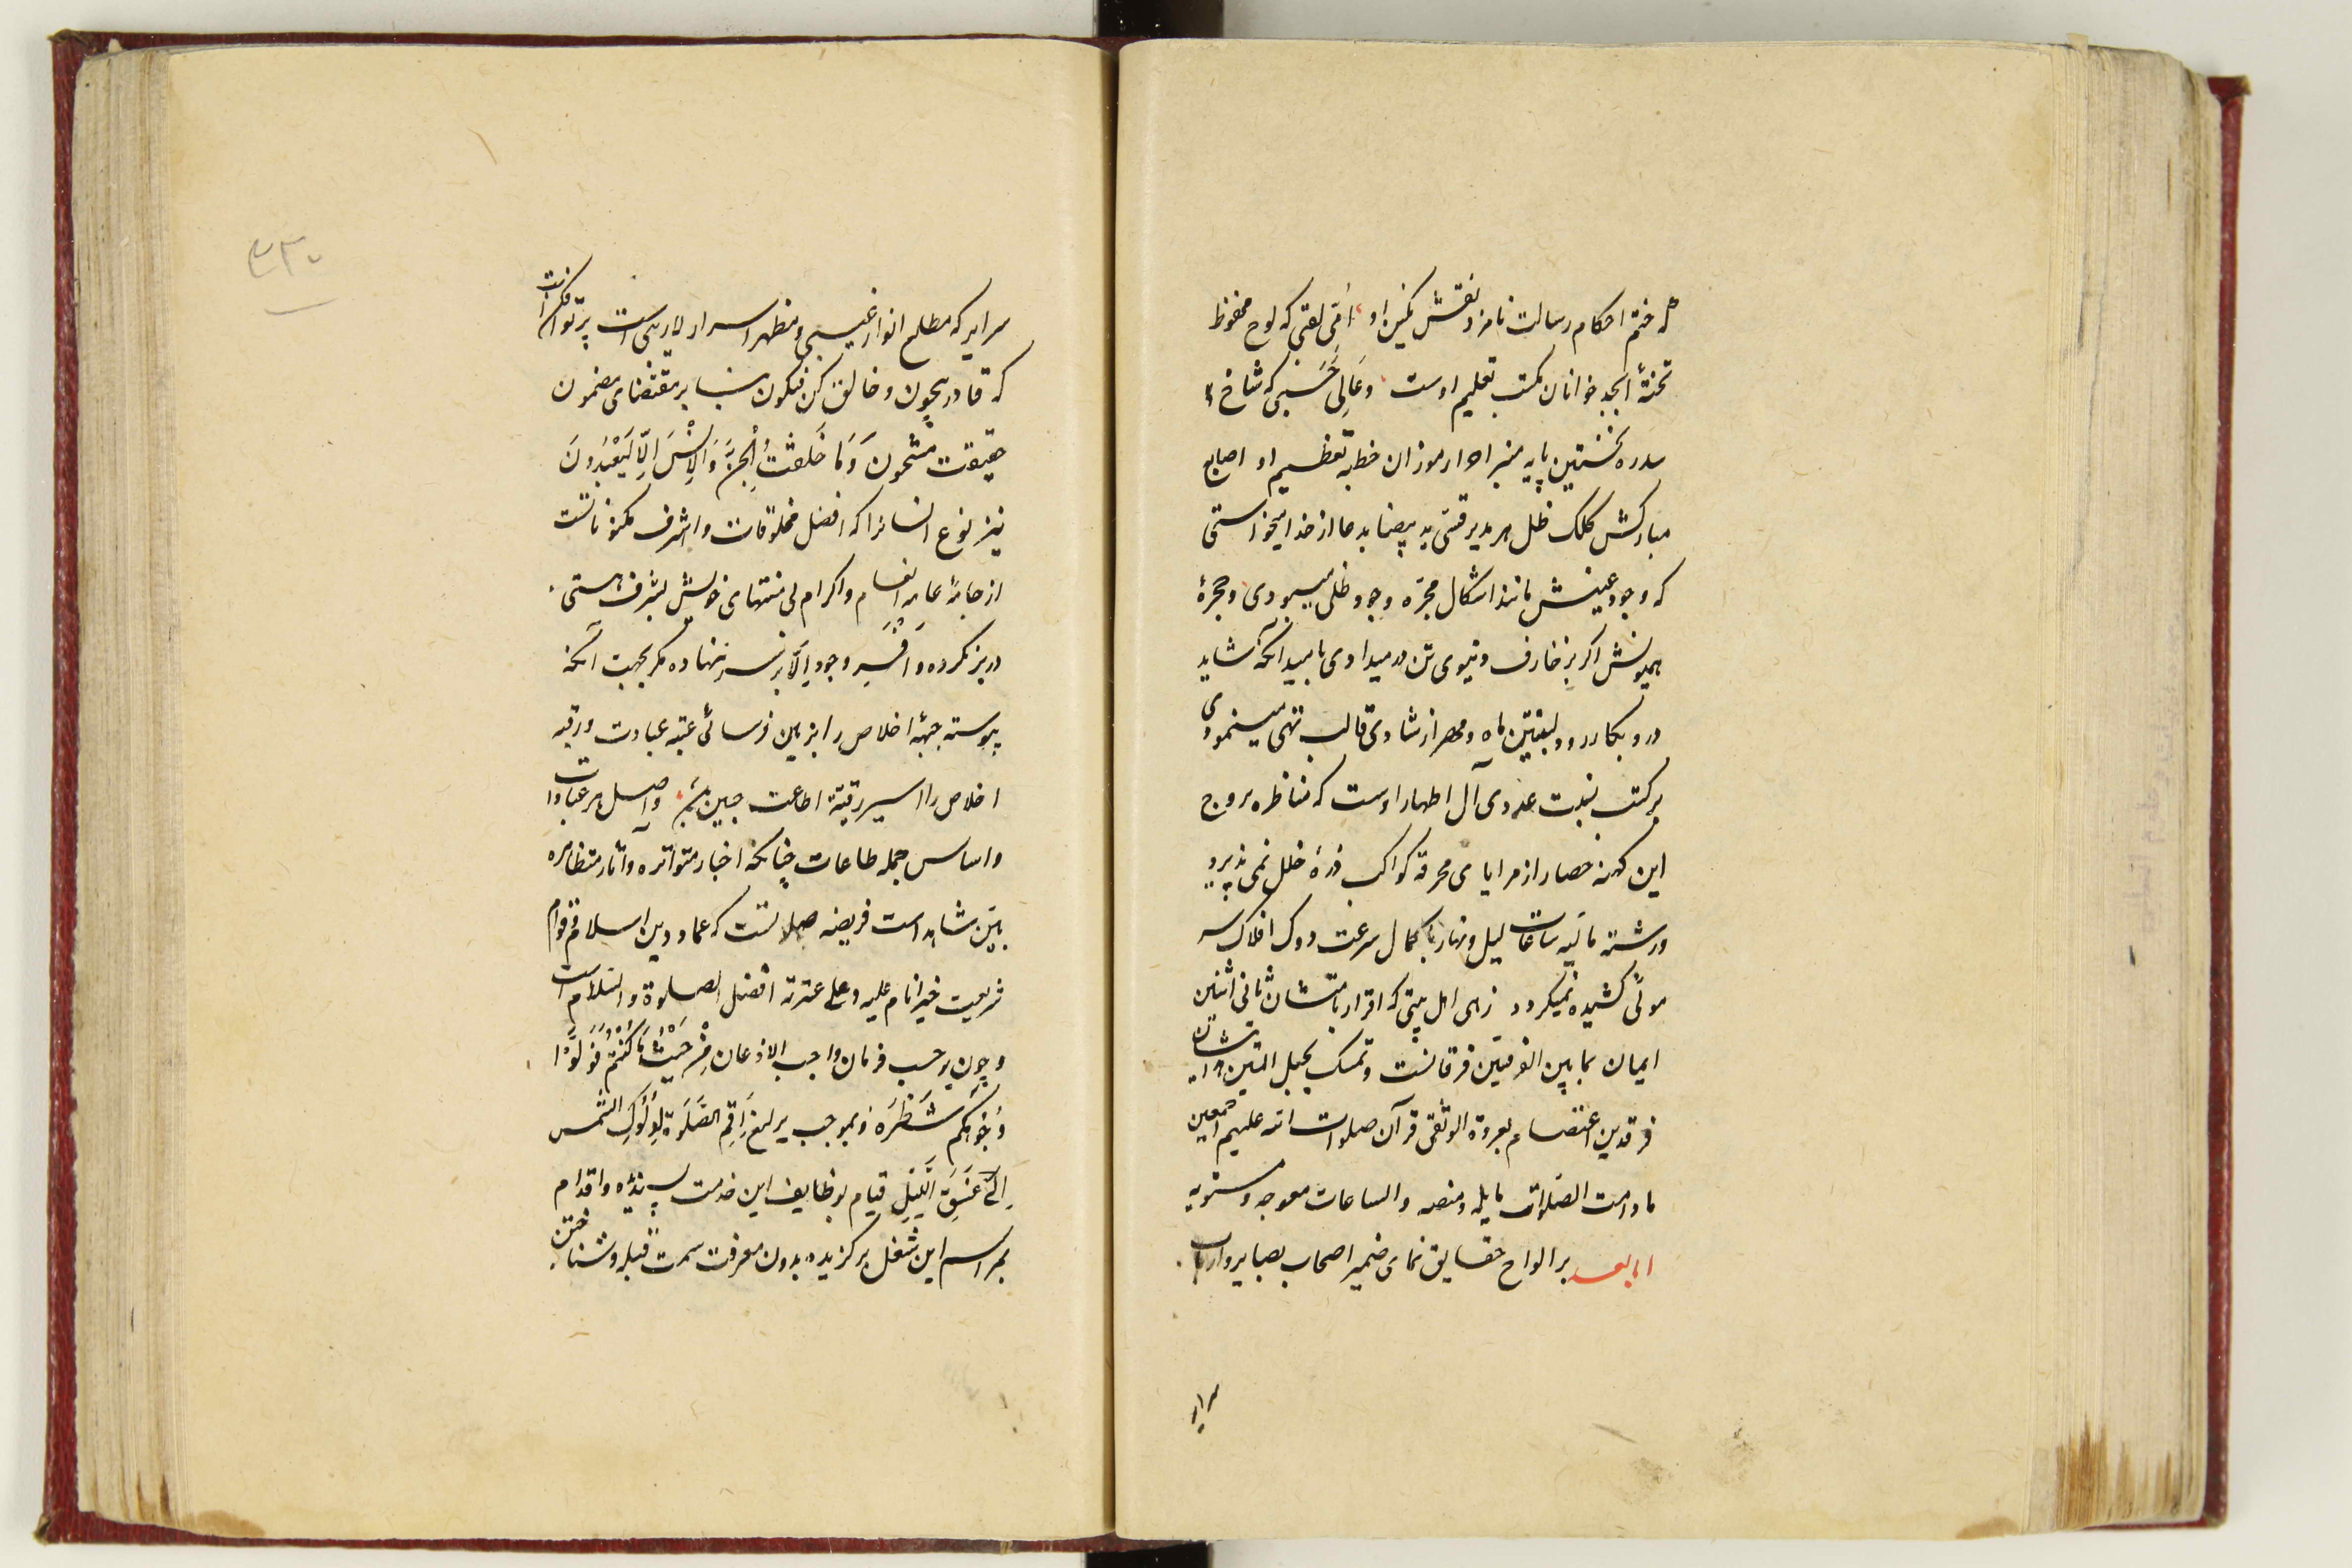 که ختم احکام رسالت نامزد نقش نگین او امّی لقبی که لوح محفوظ
تختهٔ ابجد خوانان مکتب تعلیم اوست وعالِی حَسَبی که شاخ
سدره نخستین پایه منبر اموزان خطبه تعظیم او اصابع
مبارکش کلک ظل هر مدیر قسی ید بیضا بدعا از خدا میخواستی
که وجود عینیش مانند اشکال مجرّه وجود ظلی میبودی وحجرهٔ
همیونش اکر بزخارف دنیوی تن درمیدادی بامید آنکه شاید
درو بکار رود لبنتین ماه ومهر از شادی قالب تهی مینمودی
برکت نسبت عددی آل اطهار اوست که مناظره بروج
این کهنه حصار از مرایای محرقه کواکب ذرهٔ خلل نمی‌پذیرد
ورشته مالیه ساعات لیل ونهار با کمال سرعت دوک افلاک سر
موئی کشیده نمیکردد زهی اهل بیتی که اقرار بامامتشان ثانی اثنین
ایمان بمابین الدفتین فرقانست وتمسک بحبل المتین ولایتشان
فرقدین اعتصام بعروة الوثقی قرآن صلوات الله علیهم اجمعین
مادامت الصلوات مایله ومنصه والساعات معوجه ومستویه
امابعد بر الواح حقایق نمای ضمیر اصحاب بصایر وارباب
سرایر
۳۳۰
سرایر که مطلع انوار غیبی ومظهر اسرار لاریبی است پرتوافکن است
که قادر بیچون وخالق کن فیکون بنا بر مقتضای مضمون
حقیقت مشحون وَمَا خَلَقْتُ الْجِنَّ وَالْاِنْسَ اِلّا لِیَعْبُدُونَ
نیز نوع انسانرا که افضل مخلوقات واشرف مکنوناتست
از جامهٔ عامه انعام واکرام بی منتهای خویش بشرف هستی
دربر نکرده وافسر وجود اِلّا بر سر ننهاده مکر بجهت آنکه
پیوسته جبههٔ اخلاص را بزمین فرسائی عتبه عبادت ورقبه
اخلاص را اسیر ربقهٔ اطاعت جبین واصل هر عبادات
واساس جمله طاعات چنانکه اخبار متواتره وآثار متظاهره
بیّن شاهد است فریضه صلاتست که عماد دین اسلام وقوام
شریعت خیرانام علیه وعلی عترته افضل الصلوة والسّلام است
وچون برحسب فرمان واجب الاذعان حَیْثُ مَا کُنْتُمْ فَوَلُّوا
وُجُوهَکُم شَطْرَه وبموجب یرلیغ اَقِمِ الصَّلَوةَ لِدُلُوکِ الشَّمس
اِلیٰ غَسَقِ الَّلیْلِ قیام بوظایف این خدمت پسندیده واقدام
بمراسم این شغل برکزیده بدون معرفت سمت قبله وشناختن